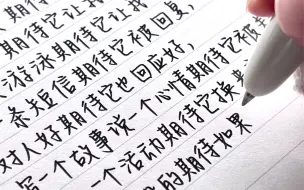 期待它让我
游泳期待它让我
条短信期待它被回复,
对人好期待它也回应好,
写一个故事说一个心情期待它被
一个活动期待它换
的期待如果